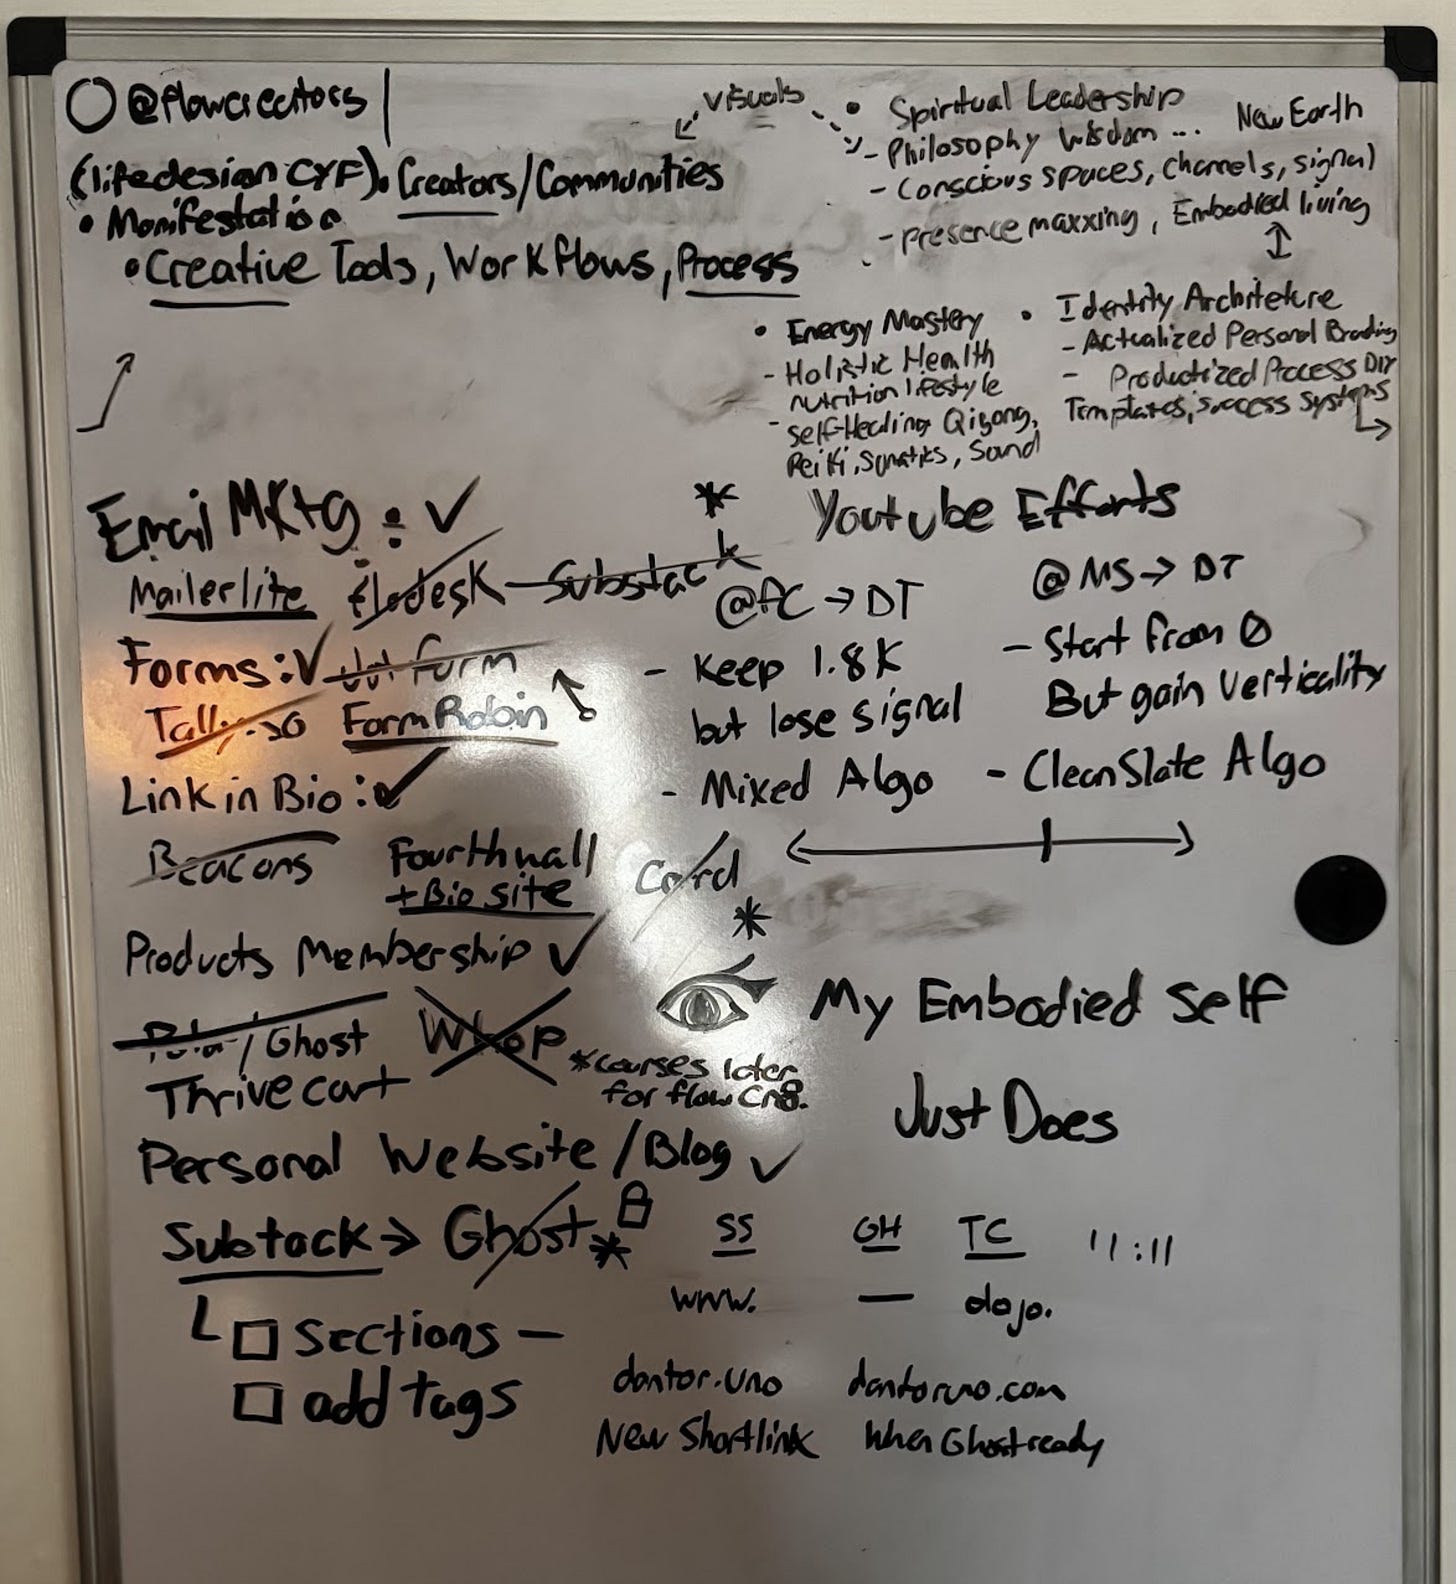 @flowcreators
visuals
(lifedesign CYF). Creators/Communities
• Manifestation
• Creative Tools, Workflows, Process
• Spiritual Leadership
New Earth
- Philosophy Wisdom ...
- Conscious spaces, channels, signal
- presence maxxing, Embodied living
• Energy Mastery
- Holistic Health
nutrition lifestyle
- Self-Healing Qigong,
Reiki, Somatiks, Sound
• Identity Architekure
- Actualized Personal Brading
- Productized Process DIY
Templates, success systems
Email Mktg : ✓
Mailerlite Flodesk - Substack
Forms: ✓ Jot form
Tally.so FormRobin
Link in Bio: ✓
Beacons Fourthwall Carrd
+ Bio site
Products Membership ✓
/Ghost Whop
Thrivecart
*courses later
for flow Cr8.
Personal Website/Blog ✓
Substack → Ghost *
☐ Sections —
☐ add tags
* Youtube Efforts
@FC → DT
- Keep 1.8K
but lose signal
- Mixed Algo
@MS → DT
- Start from 0
But gain verticality
- Clean Slate Algo
*
My Embodied Self
Just Does
SS GH TC 11:11
www. — dojo.
dantor.uno dantoruno.com
New Shortlink When Ghost ready